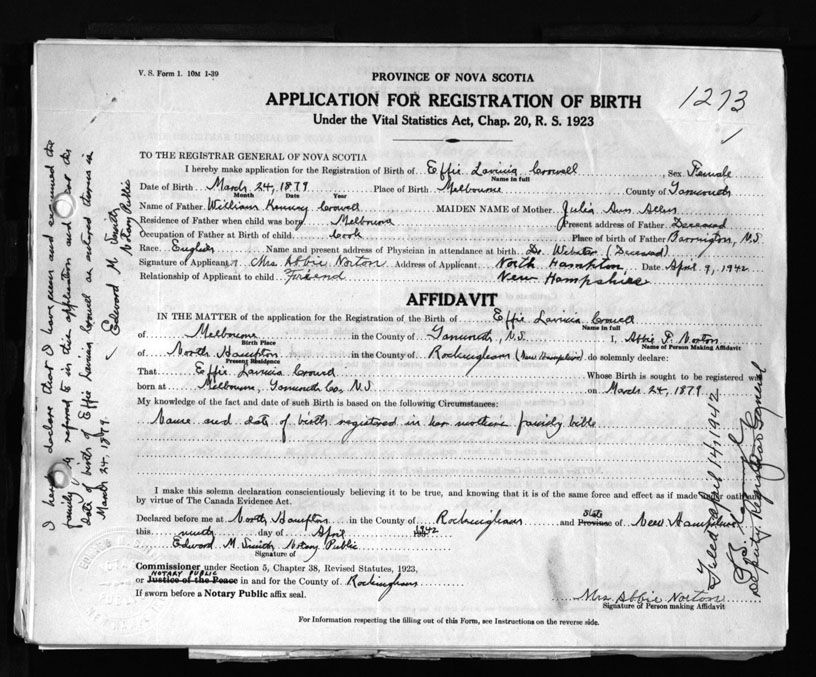 V. S. Form 1. 10M 1-39
PROVINCE OF NOVA SCOTIA
APPLICATION FOR REGISTRATION OF BIRTH
1273
Under the Vital Statistics Act, Chap. 20, R. S. 1923
TO THE REGISTRAR GENERAL OF NOVA SCOTIA
I hereby make application for the Registration of Birth of Effie Lavinia Crowell Sex Female
Name in full
Date of Birth March 24, 1879 Place of Birth Melbourne County of Yarmouth
Month Date Year
Name of Father William Crowell MAIDEN NAME of Mother Julia Ann Allen
Residence of Father when child was born Melbourne Present address of Father Deceased
Occupation of Father at Birth of child Cook Place of birth of Father Barrington, N.S.
Race English Name and present address of Physician in attendance at birth Dr. Webster (Deceased)
Signature of Applicant Mrs Abbie Norton Address of Applicant North Hampton, Date April 9, 1942
Relationship of Applicant to child Friend New Hampshire
AFFIDAVIT
IN THE MATTER of the application for the Registration of the Birth of Effie Lavinia Crowell
Name in full
of Melbourne in the County of Yarmouth, N.S. I, Abbie P. Norton
Birth Place Name of Person Making Affidavit
of North Hampton in the County of Rockingham (New Hampshire) do solemnly declare:
Present Residence
That Effie Lavinia Crowell Whose Birth is sought to be registered was
born at Melbourne, Yarmouth Co, N.S. on March 24, 1879
My knowledge of the fact and date of such Birth is based on the following Circumstances:
Name and date of birth registered in her mothers family bible
I make this solemn declaration conscientiously believing it to be true, and knowing that it is of the same force and effect as if made under oath and
by virtue of The Canada Evidence Act.
Declared before me at North Hampton in the County of Rockingham and State Province of New Hampshire
this ninth day of April 1942
Edward M. Smith Notary Public
Signature of
Commissioner under Section 5, Chapter 38, Revised Statutes, 1923,
NOTARY PUBLIC
or Justice of the Peace in and for the County of Rockingham
If sworn before a Notary Public affix seal.
Mrs Abbie Norton
Signature of Person making Affidavit
For Information respecting the filling out of this Form, see Instructions on the reverse side.
I here declare that I have seen and examined the
family referred to in this application and that the
date of birth of Effie Lavinia Crowell as entered therein is
March 24, 1879.
Edward M. Smith
Notary Public
Filed April 14, 1942
Deputy Registrar General